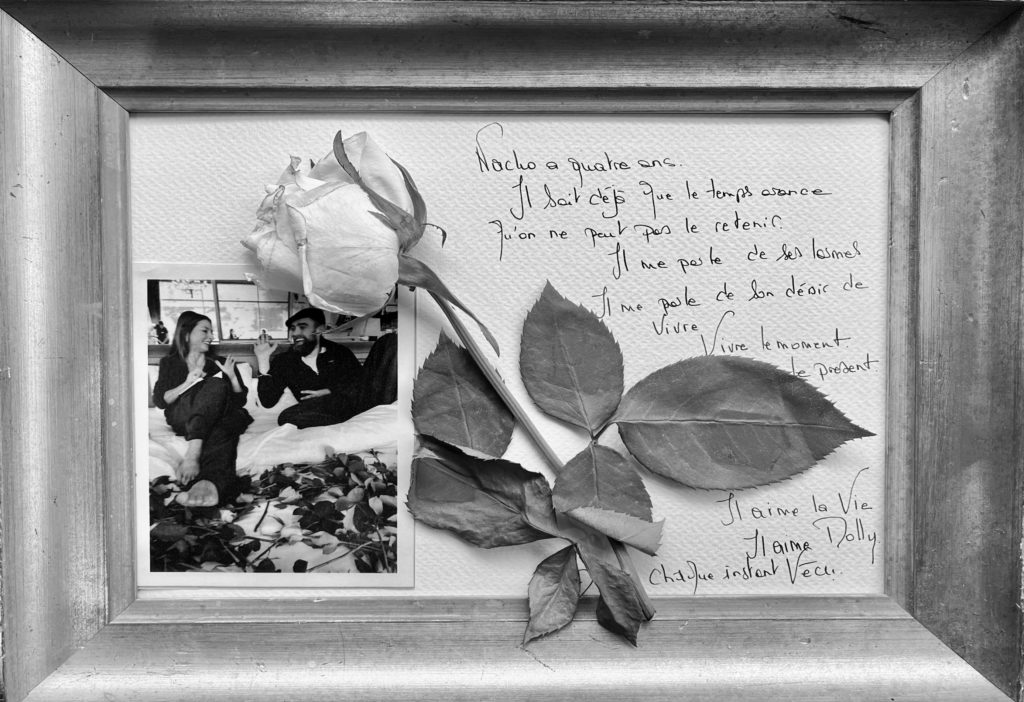 Nacho a quatre ans.
Il sait déjà que le temps avance
qu'on ne peut pas le retenir.
Il me parle de ses larmes
Il me parle de son désir de
vivre
Vivre le moment
le présent
Il aime la Vie
Il aime Dolly.
Chaque instant Vécu.